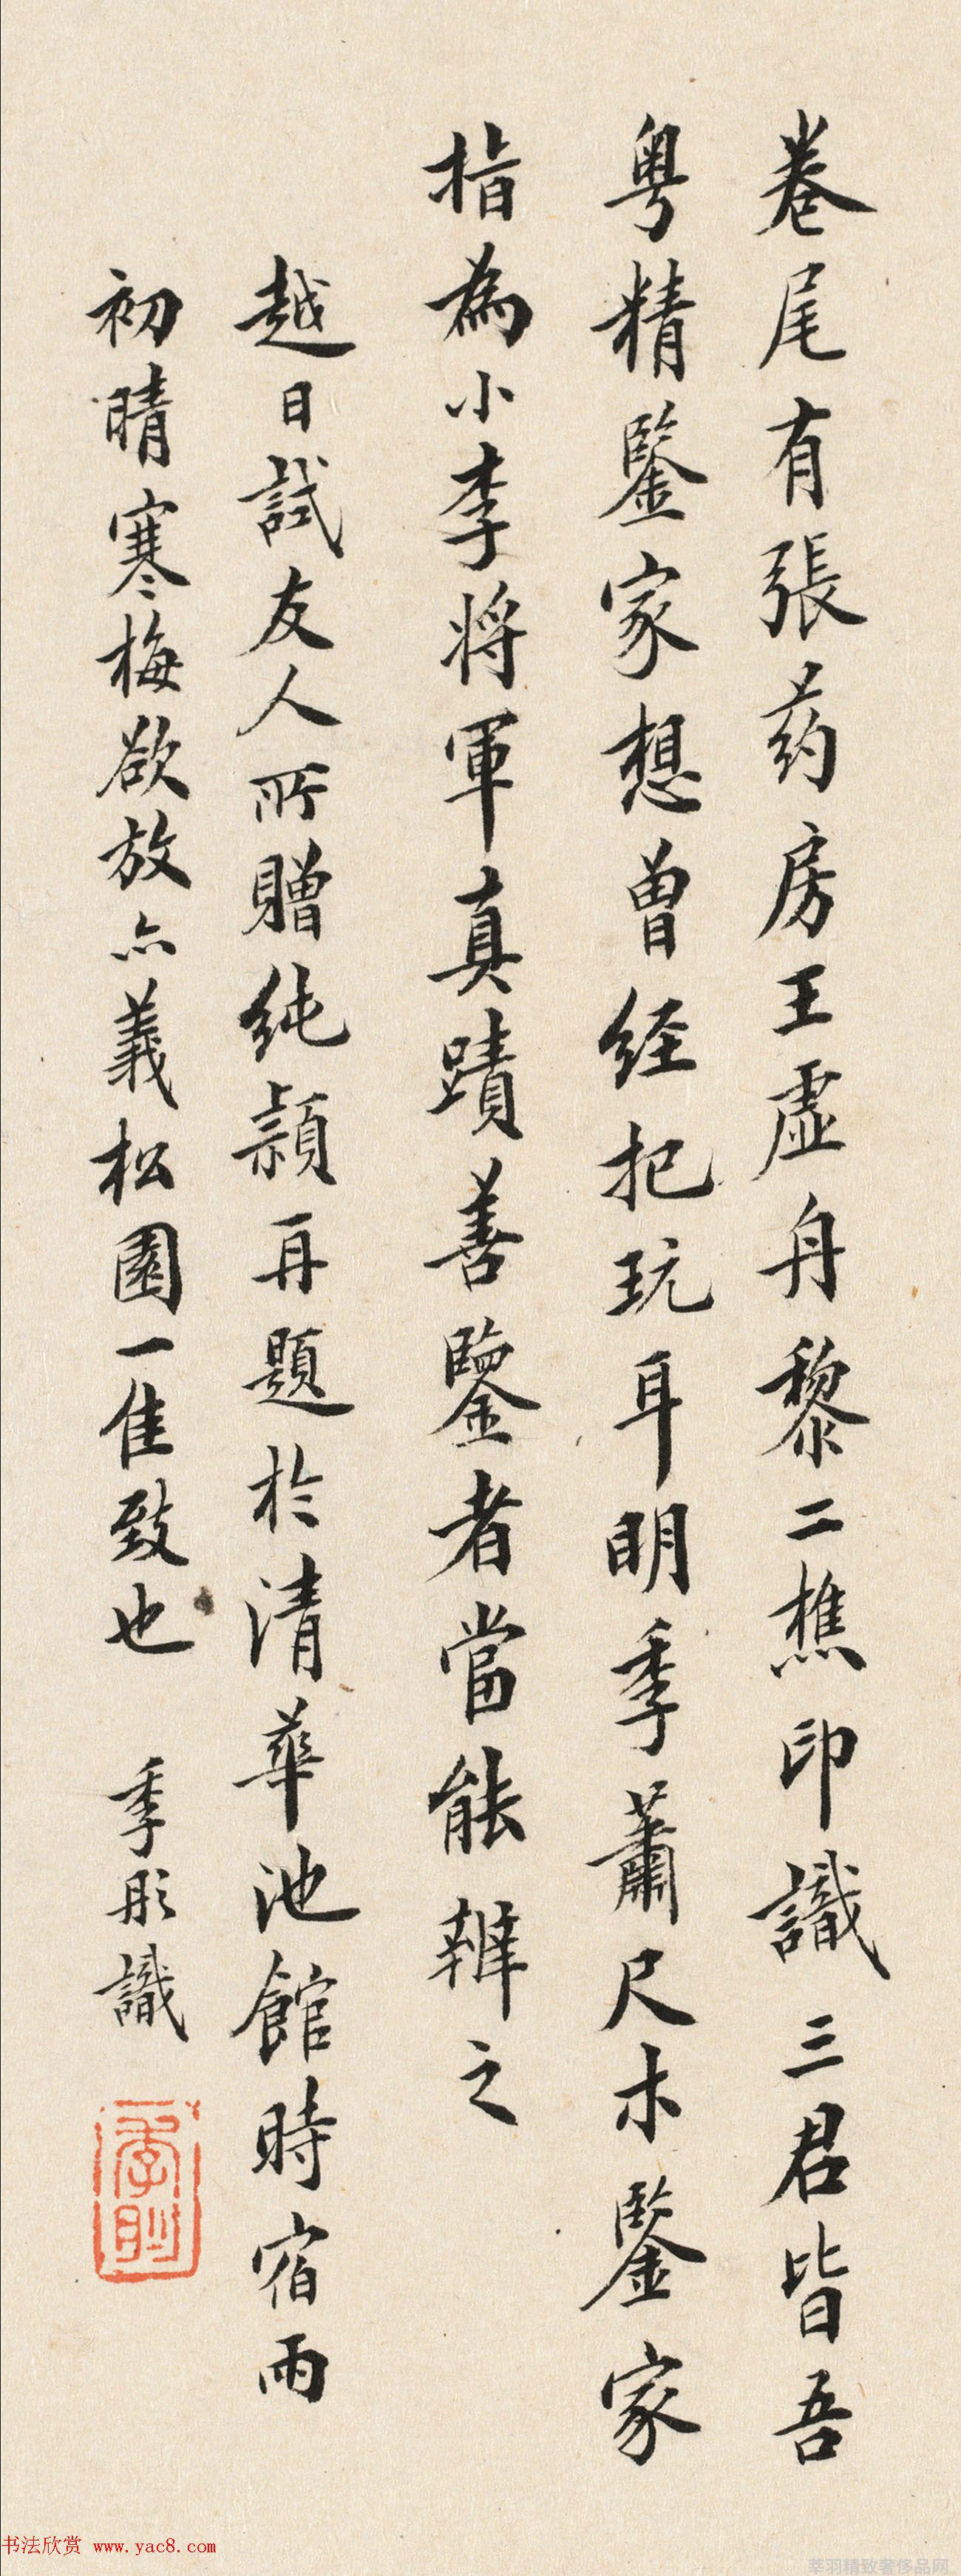 卷尾有張药房王虛舟黎二樵印識三君皆吾
粤精鑒家想曾经把玩耳明季蕭尺木鑒家
指為小李將軍真蹟善鑒者當能辨之
越日試友人所贈纯穎再題於清華池館時宿雨
初晴寒梅欲放亦義松園一佳致也 季彤識
书法欣赏 www.yac8.com
莘羽精致奢侈品网